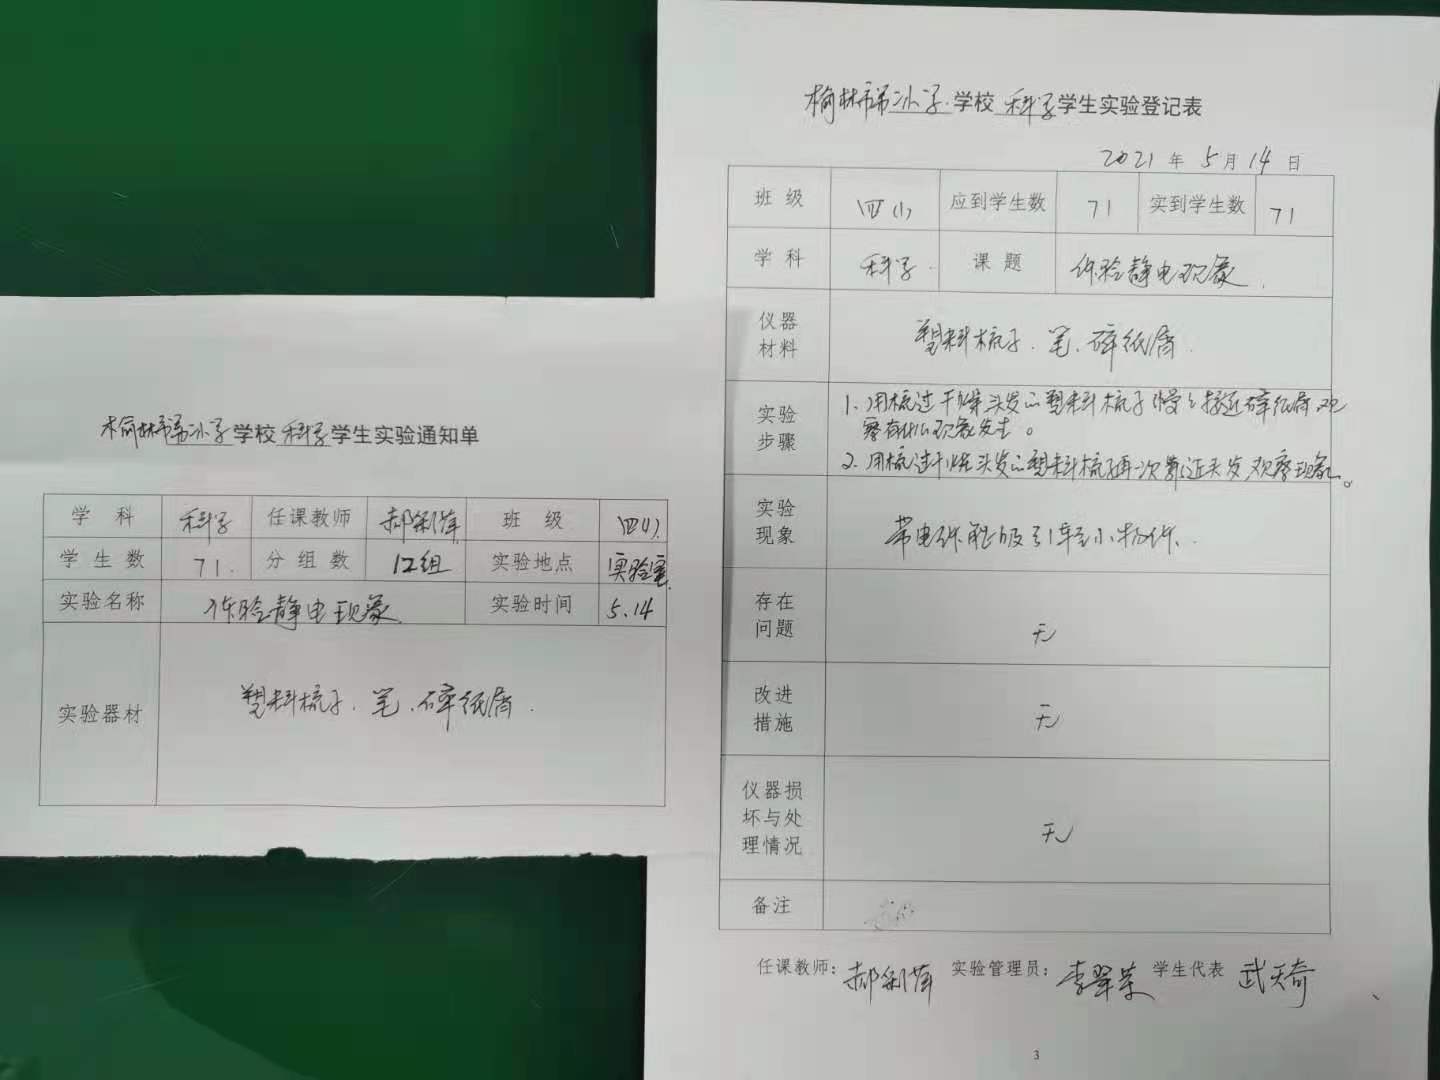 榆林市第 小学学校 科学学生实验通知单
学科 科学 任课教师 郝 萍 班级 四(1)
学生数 71. 分组数 12组 实验地点 实验室
实验名称 体验静电现象 实验时间 5.14
实验器材 塑料梳子、笔、碎纸屑.
榆林市第 小学.学校 科学学生实验登记表
2021年5月14日
班级 四(1) 应到学生数 71 实到学生数 71
学科 科学. 课题 体验静电现象.
仪器
材料 塑料梳子、笔、碎纸屑.
实验
步骤 1、用梳过干燥头发的塑料梳子慢慢接近碎纸屑,观
察有什么现象发生。
2、用梳过干燥头发的塑料梳子再一次靠近头发,观察现象。
实验
现象 带电体能吸引轻小物体.
存在
问题 无
改进
措施 无
仪器损
坏与处
理情况 无
备注
任课教师:郝 萍 实验管理员:李翠 学生代表 武天奇
3